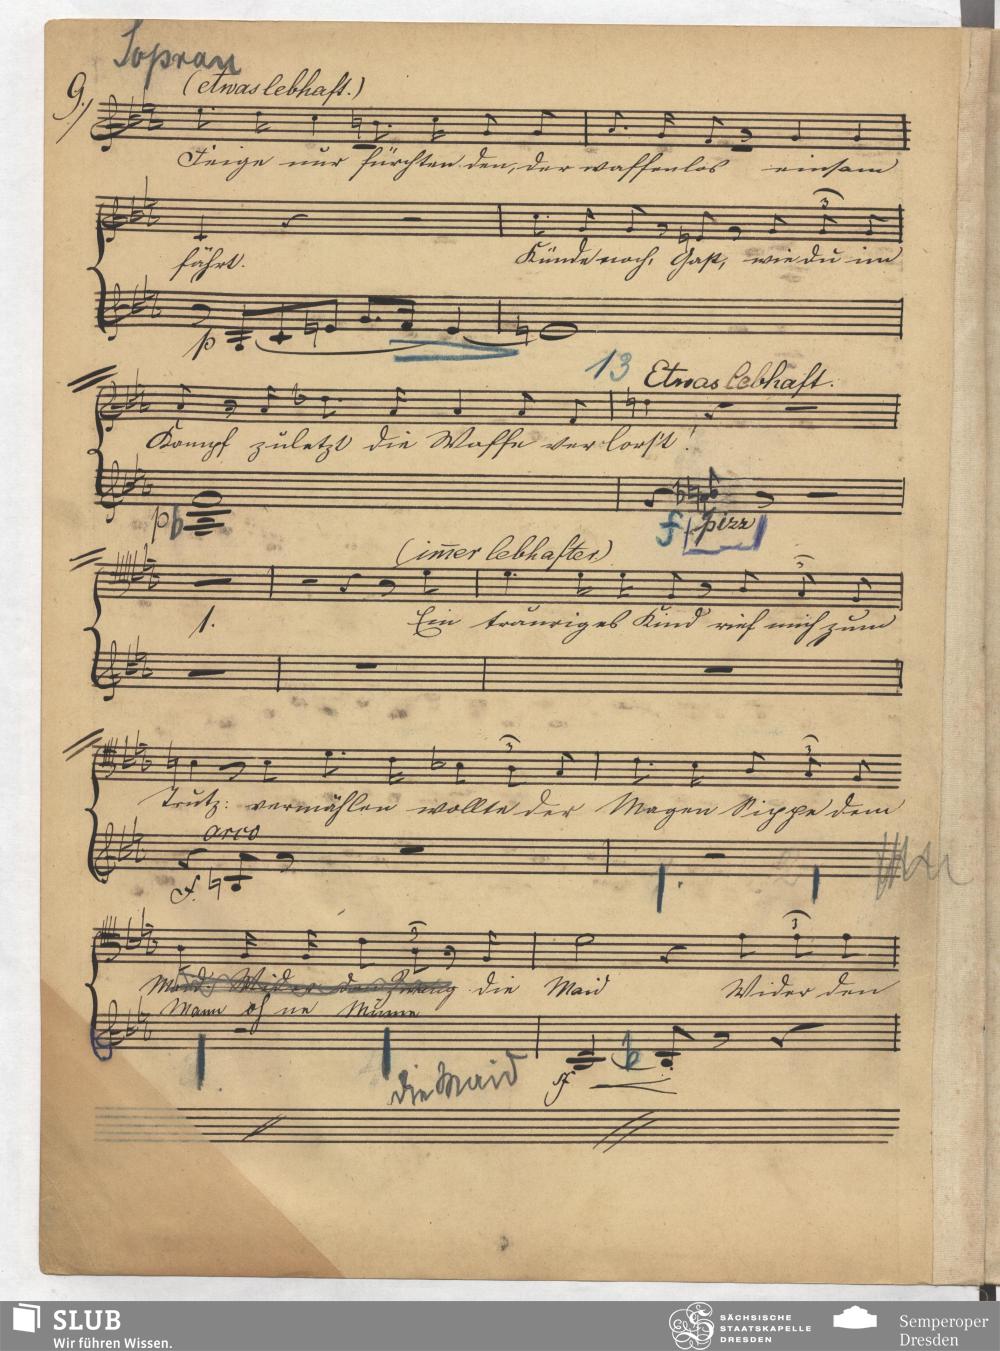 Sopran
9.) (etwas lebhaft.)
Feige nur fürchten den, der waffenlos einsam
3
fährt. Künde noch, Gast, wie du im
p
13 Etwas lebhaft.
Kampf zuletzt die Waffe verlorst!
p f pizz
(im̅er lebhafter)
3
1. Ein trauriges Kind rief mich zum
3 3
Trutz: vermählen wollte der Magen Sippe dem
arco
f.
3 3
die Maid Wider den
Mann oh ne Minne
die Maid
SLUB
Wir führen Wissen.
SÄCHSISCHE
STAATSKAPELLE
DRESDEN
Semperoper
Dresden